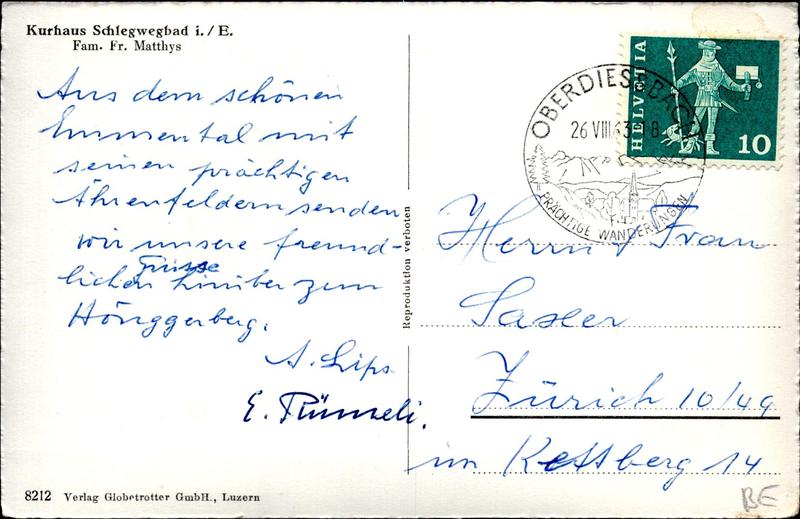 Kurhaus Schlegwegbad i./E.
Fam. Fr. Matthys
Aus dem schönen
Emmental mit
seinen prächtigen
Ährenfeldern senden
wir unsere freund-
lichen Grüsse hinüber zum
Hönggerberg.
A. Lips
E. Rümeli.
8212 Verlag Globetrotter GmbH., Luzern
Reproduktion verboten
HELVETIA
10
OBERDIESSBACH
26 VIII 63 18
PRÄCHTIGE WANDERUNGEN
Herrn & Frau
Sasler
Zürich 10/49
im Kettberg 14
BE